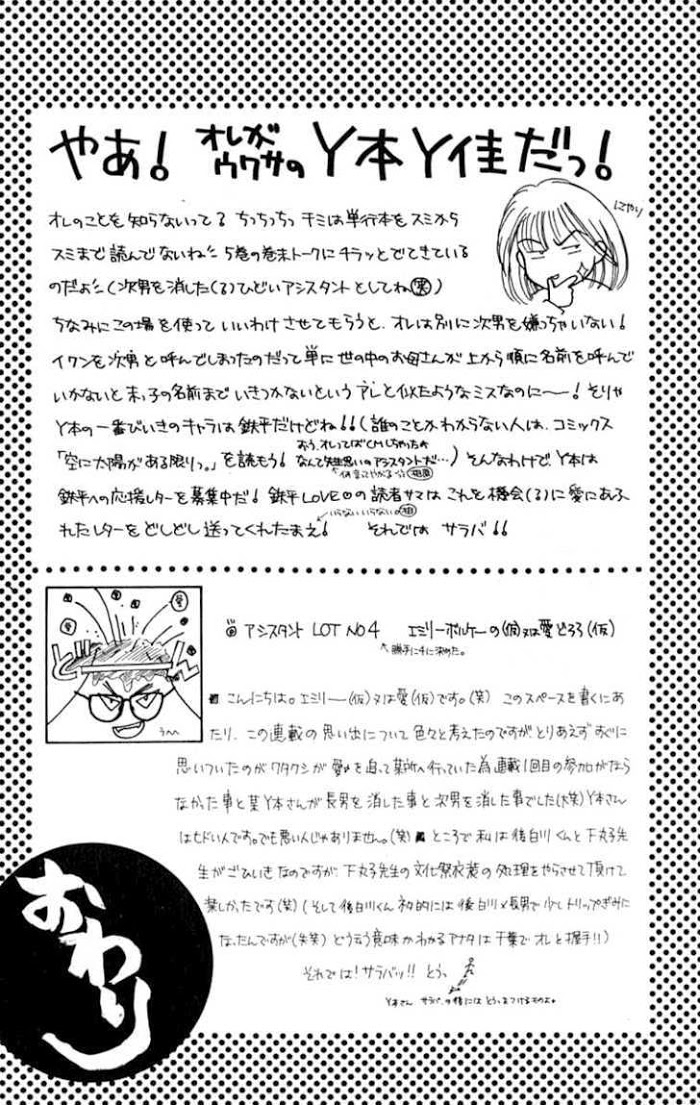 やあ! オレがウワサの Y本Y佳だっ!
にやり
オレのことを知らないって? ちっちっちっ キミは単行本をスミから
スミまで読んでないね 5巻の巻末トークにチラッとでてきている
のだよ (次男を消した(る)ひどいアシスタントとしてね 笑)
ちなみにこの場を使って いいわけさせてもらうと、オレは別に次男を嫌っちゃいない!
イクンを次男と呼んでしまったのだって単に世の中のお母さんが上から順に名前を呼んで
いかないと末っ子の名前までいきつかないというアレと似たようなミスなのに〜! そりゃ
Y本の一番びいきのキャラは鉄平だけどね!! (誰のことかわからない人は、コミックス
「空に太陽がある限りっ。」を読もう! おう、オレってばCMしちゃったぜ なんて先生思いのアシスタントだ…) そんなわけで、Y本は
鉄平への応援レターを募集中だ! 鉄平LOVE♡の読者サマは これを機会(る)に愛にあふ
れたレターをどしどし送ってくれたまえ! それでは サラバ!!
いらないいらない
アシスタント LOT NO4 エミリーボルケーの(仮)又は愛どろろ(仮)
勝手に4に決めた。
こんにちは。エミリー―(仮)又は愛(仮)です。(笑) このスペースを書くにあ
たり、この連載の思い出について色々と考えたのですがとりあえずすぐに
思いついたのがワタクシが愛を追って某所へ行っていた為連載1回目の参加がなら
なかった事と某Y本さんが長男を消した事と次男を消した事でした(大笑) Y本さん
はヒドい人です。でも悪い人じゃありません。(笑) ところで私は後白川くんと下丸子先
生がごひいきなのですが、下丸子先生の文化祭衣装の処理をやらせて頂けて
楽しかったです(笑) (そして後白川くん 私的には後白川×長男で少しトリップぎみに
なったんですが(失笑) どう云う意味かわかるアナタは千葉でオレと握手!!)
それでは! サラバッ!! とうっ
Y本さん サラバ、の時には とうっ、をつけるものよ。
うへへ
おわり